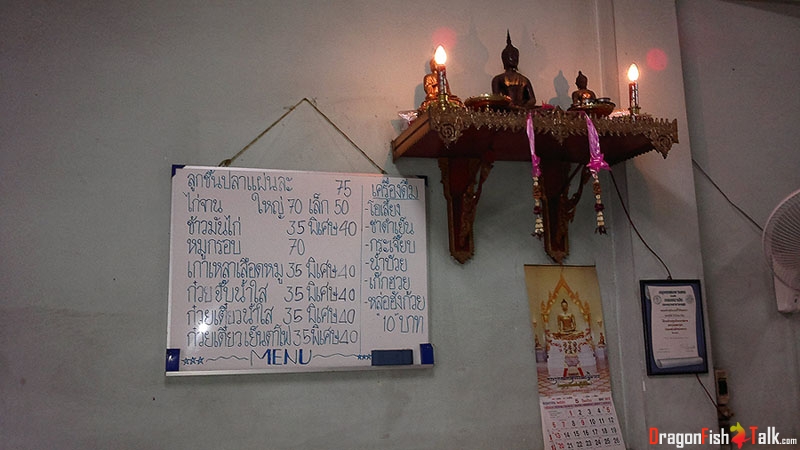 ลูกชิ้นปลาแผ่นละ 75
ไก่จาน ใหญ่ 70 เล็ก 50
ข้าวมันไก่ 35 พิเศษ 40
หมูกรอบ 70
เกาเหลาเลือดหมู 35 พิเศษ 40
ก๋วยจั๊บน้ำใส 35 พิเศษ 40
ก๋วยเตี๋ยวน้ำใส 35 พิเศษ 40
ก๋วยเตี๋ยวเย็นตาโฟ 35 พิเศษ 40
MENU
เครื่องดื่ม
-โอเลี้ยง
-ชาดำเย็น
-กระเจี๊ยบ
-น้ำบ๊วย
-เก๊กฮวย
-หล่อฮั่งก๊วย
"10" บาท
5
DragonFishTalk.com